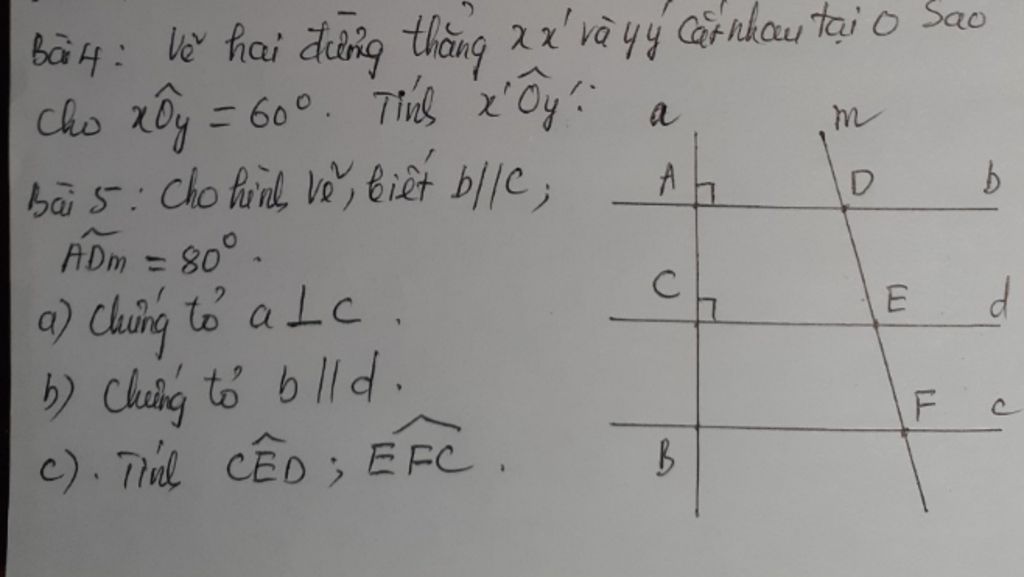 Bài 4: Vẽ hai đường thẳng xx' và yy' cắt nhau tại O sao
cho xÔy = 60°. Tính x'Ôy'.
Bài 5: Cho hình vẽ, biết b//c;
ADm = 80°.
a) Chứng tỏ a ⊥ c.
b) Chứng tỏ b // d.
c). Tính CÊD; EFC.
a m
A D b
C E d
F c
B